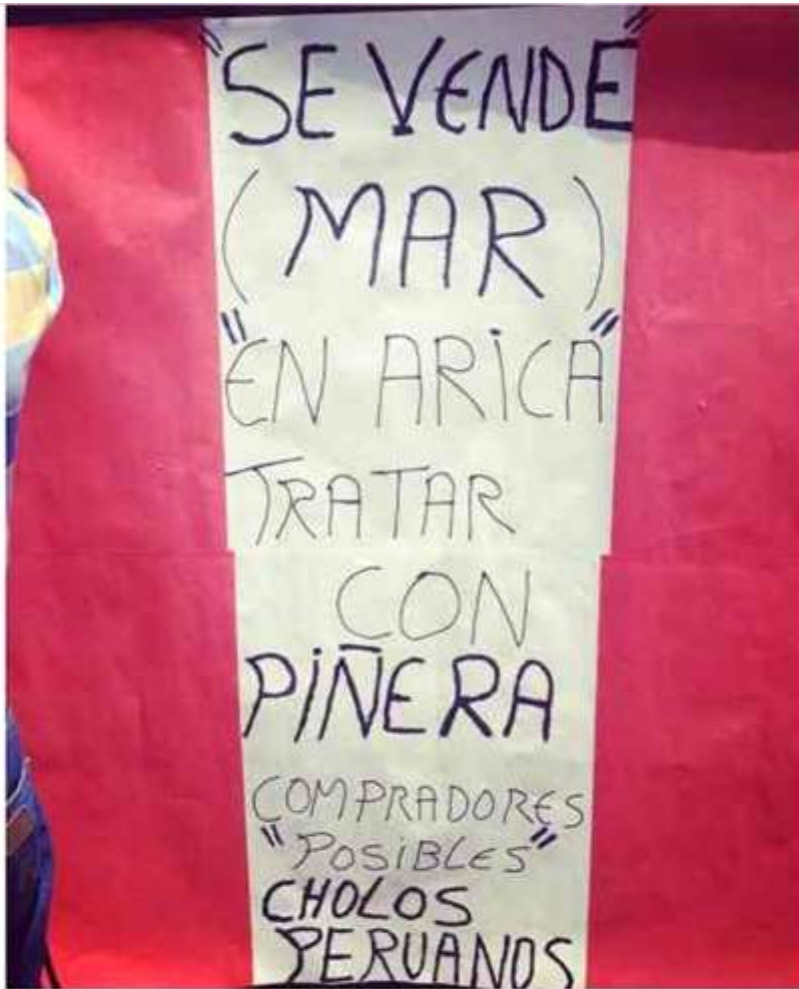 "SE VENDE"
(MAR)
"EN ARICA"
TRATAR
CON
PIÑERA
COMPRADORES
"POSIBLES"
CHOLOS
PERUANOS